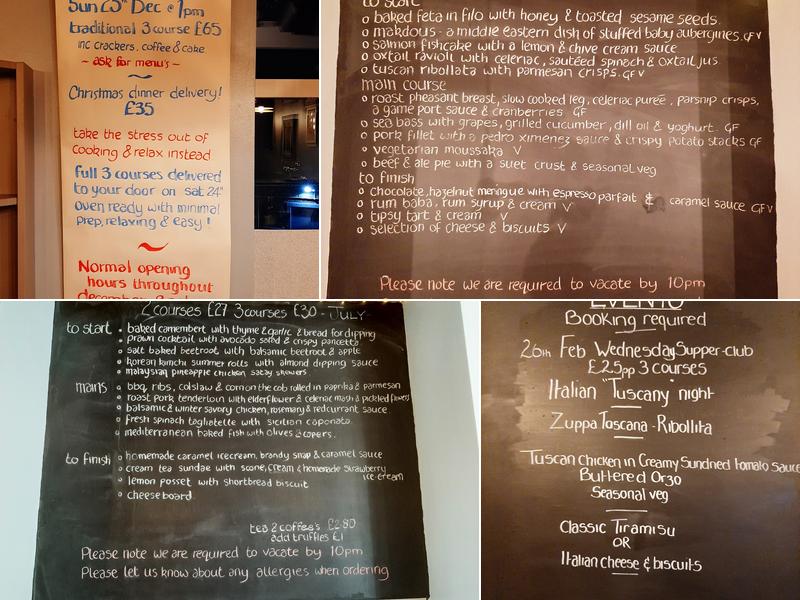 Sun 25th Dec @ 1pm
traditional 3 course £65
inc crackers, coffee & cake
~ ask for menu's ~
Christmas dinner delivery!
£35
take the stress out of
cooking & relax instead
Full 3 courses delivered
to your door on sat 24th
oven ready with minimal
prep, relaxing & easy!
Normal opening
hours throughout
to start
baked feta in filo with honey & toasted sesame seeds.
makdous - a middle eastern dish of stuffed baby aubergines. GFV
salmon fishcake with a lemon & chive cream sauce
oxtail ravioli with celeriac, sautéed spinach & oxtail jus
tuscan ribollata with parmesan crisps. GFV
main course
roast pheasant breast, slow cooked leg, celeriac pureé, parsnip crisps,
a game port sauce & cranberries GF
sea bass with grapes, grilled cucumber, dill oil & yoghurt. GF
pork fillet with a pedro ximenez sauce & crispy potato stacks GF
vegetarian moussaka V
beef & ale pie with a suet crust & seasonal veg
to finish
chocolate, hazelnut meringue with espresso parfait & caramel sauce GFV
rum baba, rum syrup & cream V
tipsy tart & cream V
selection of cheese & biscuits V
Please note we are required to vacate by 10pm
2 courses £27 3 courses £30 - JULY
to start
baked camembert with thyme & garlic & bread for dipping
prawn cocktail with avocado salad & crispy pancetta
salt baked beetroot with balsamic beetroot & apple
korean kimchi summer rolls with almond dipping sauce
malaysian pineapple chicken satay skewers
mains
bbq ribs, colslaw & corn on the cob rolled in paprika & parmesan
roast pork tenderloin with elderflower & celeriac mash & pickled flowers
balsamic & winter savory chicken, rosemary & redcurrant sauce
fresh spinach tagliatelle with sicilian caponata.
mediterranean baked fish with olives & capers.
to finish
homemade caramel icecream, brandy snap & caramel sauce
cream tea sundae with scone, cream & homemade strawberry
ice-cream
lemon posset with shortbread biscuit
cheeseboard
tea & coffee's £2.80
add truffles £1
Please note we are required to vacate by 10pm
Please let us know about any allergies when ordering
EVENTS
Booking required
26th Feb Wednesday Supper-club
£25pp 3 courses
Italian "Tuscany" night
Zuppa Toscana - Ribollita
Tuscan Chicken in Creamy Sundried tomato Sauce
Buttered Orzo
Seasonal veg
Classic Tiramisu
OR
Italian Cheese & biscuits